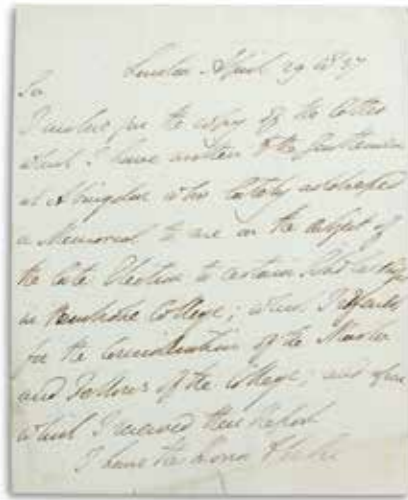 London April 29 1837
Sir
I enclose you the copy of the letter
which I have written to the Gentlemen
at Abingdon who lately addressed
a Memorial to me on the subject of
the late Election to certain Scholarships
in Pembroke College; which I referred
for the Consideration of the Master
and Fellows of the College; and upon
which I received their Report
I have the honor to be